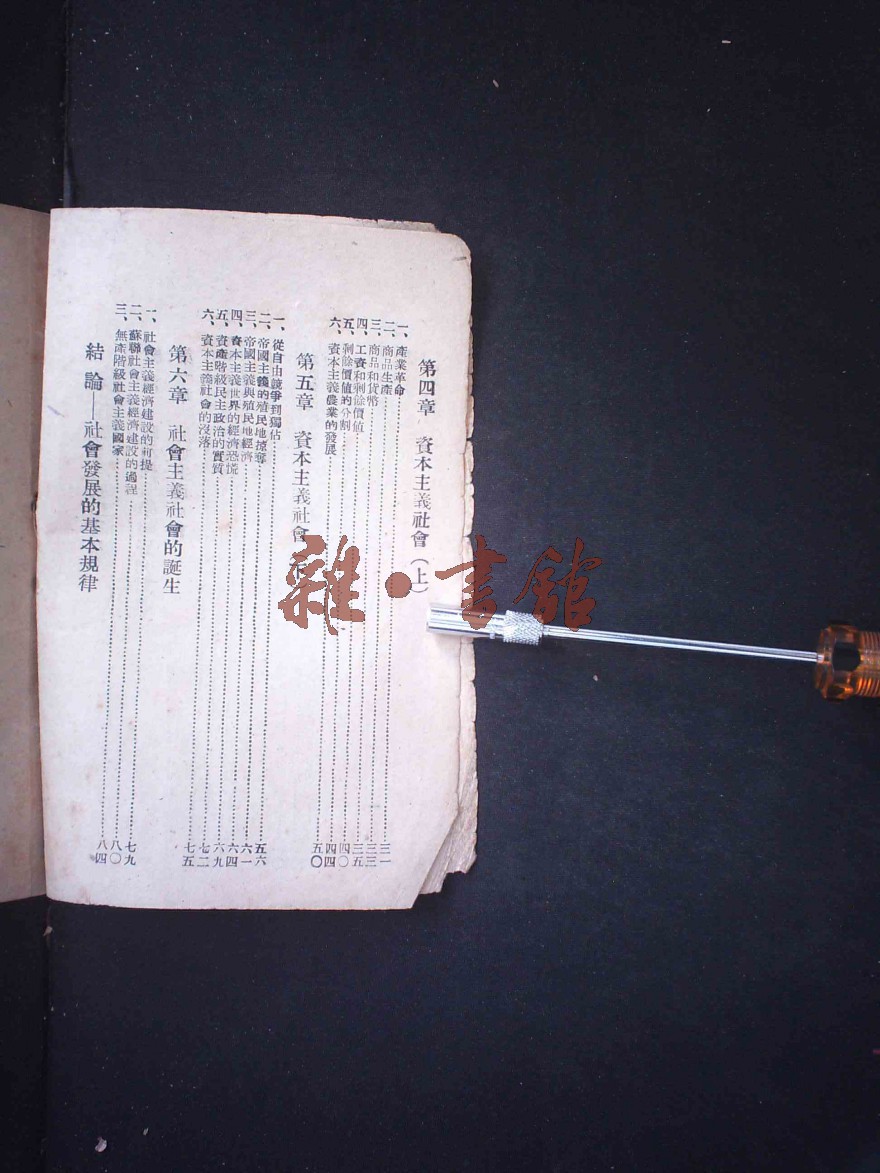 第四章 資本主義社會（上）
一、產業革命……三一
二、商品生產……三三
三、商品和貨幣……三五
四、工資和剩餘價值……四〇
五、剩餘價值的分割……四四
六、資本主義農業的發展……五〇
第五章 資本主義社會
一、從自由競爭到獨佔……五六
二、帝國主義的殖民地掠奪……六一
三、帝國主義與殖民地經濟……六四
四、資本主義世界的經濟恐慌……六九
五、資產階級民主政治的實質……七二
六、資本主義社會的沒落……七五
第六章 社會主義社會的誕生
一、社會主義經濟建設的前提……七九
二、蘇聯社會主義經濟建設的過程……八〇
三、無產階級社會主義國家……八四
結論——社會發展的基本規律
雜·書館